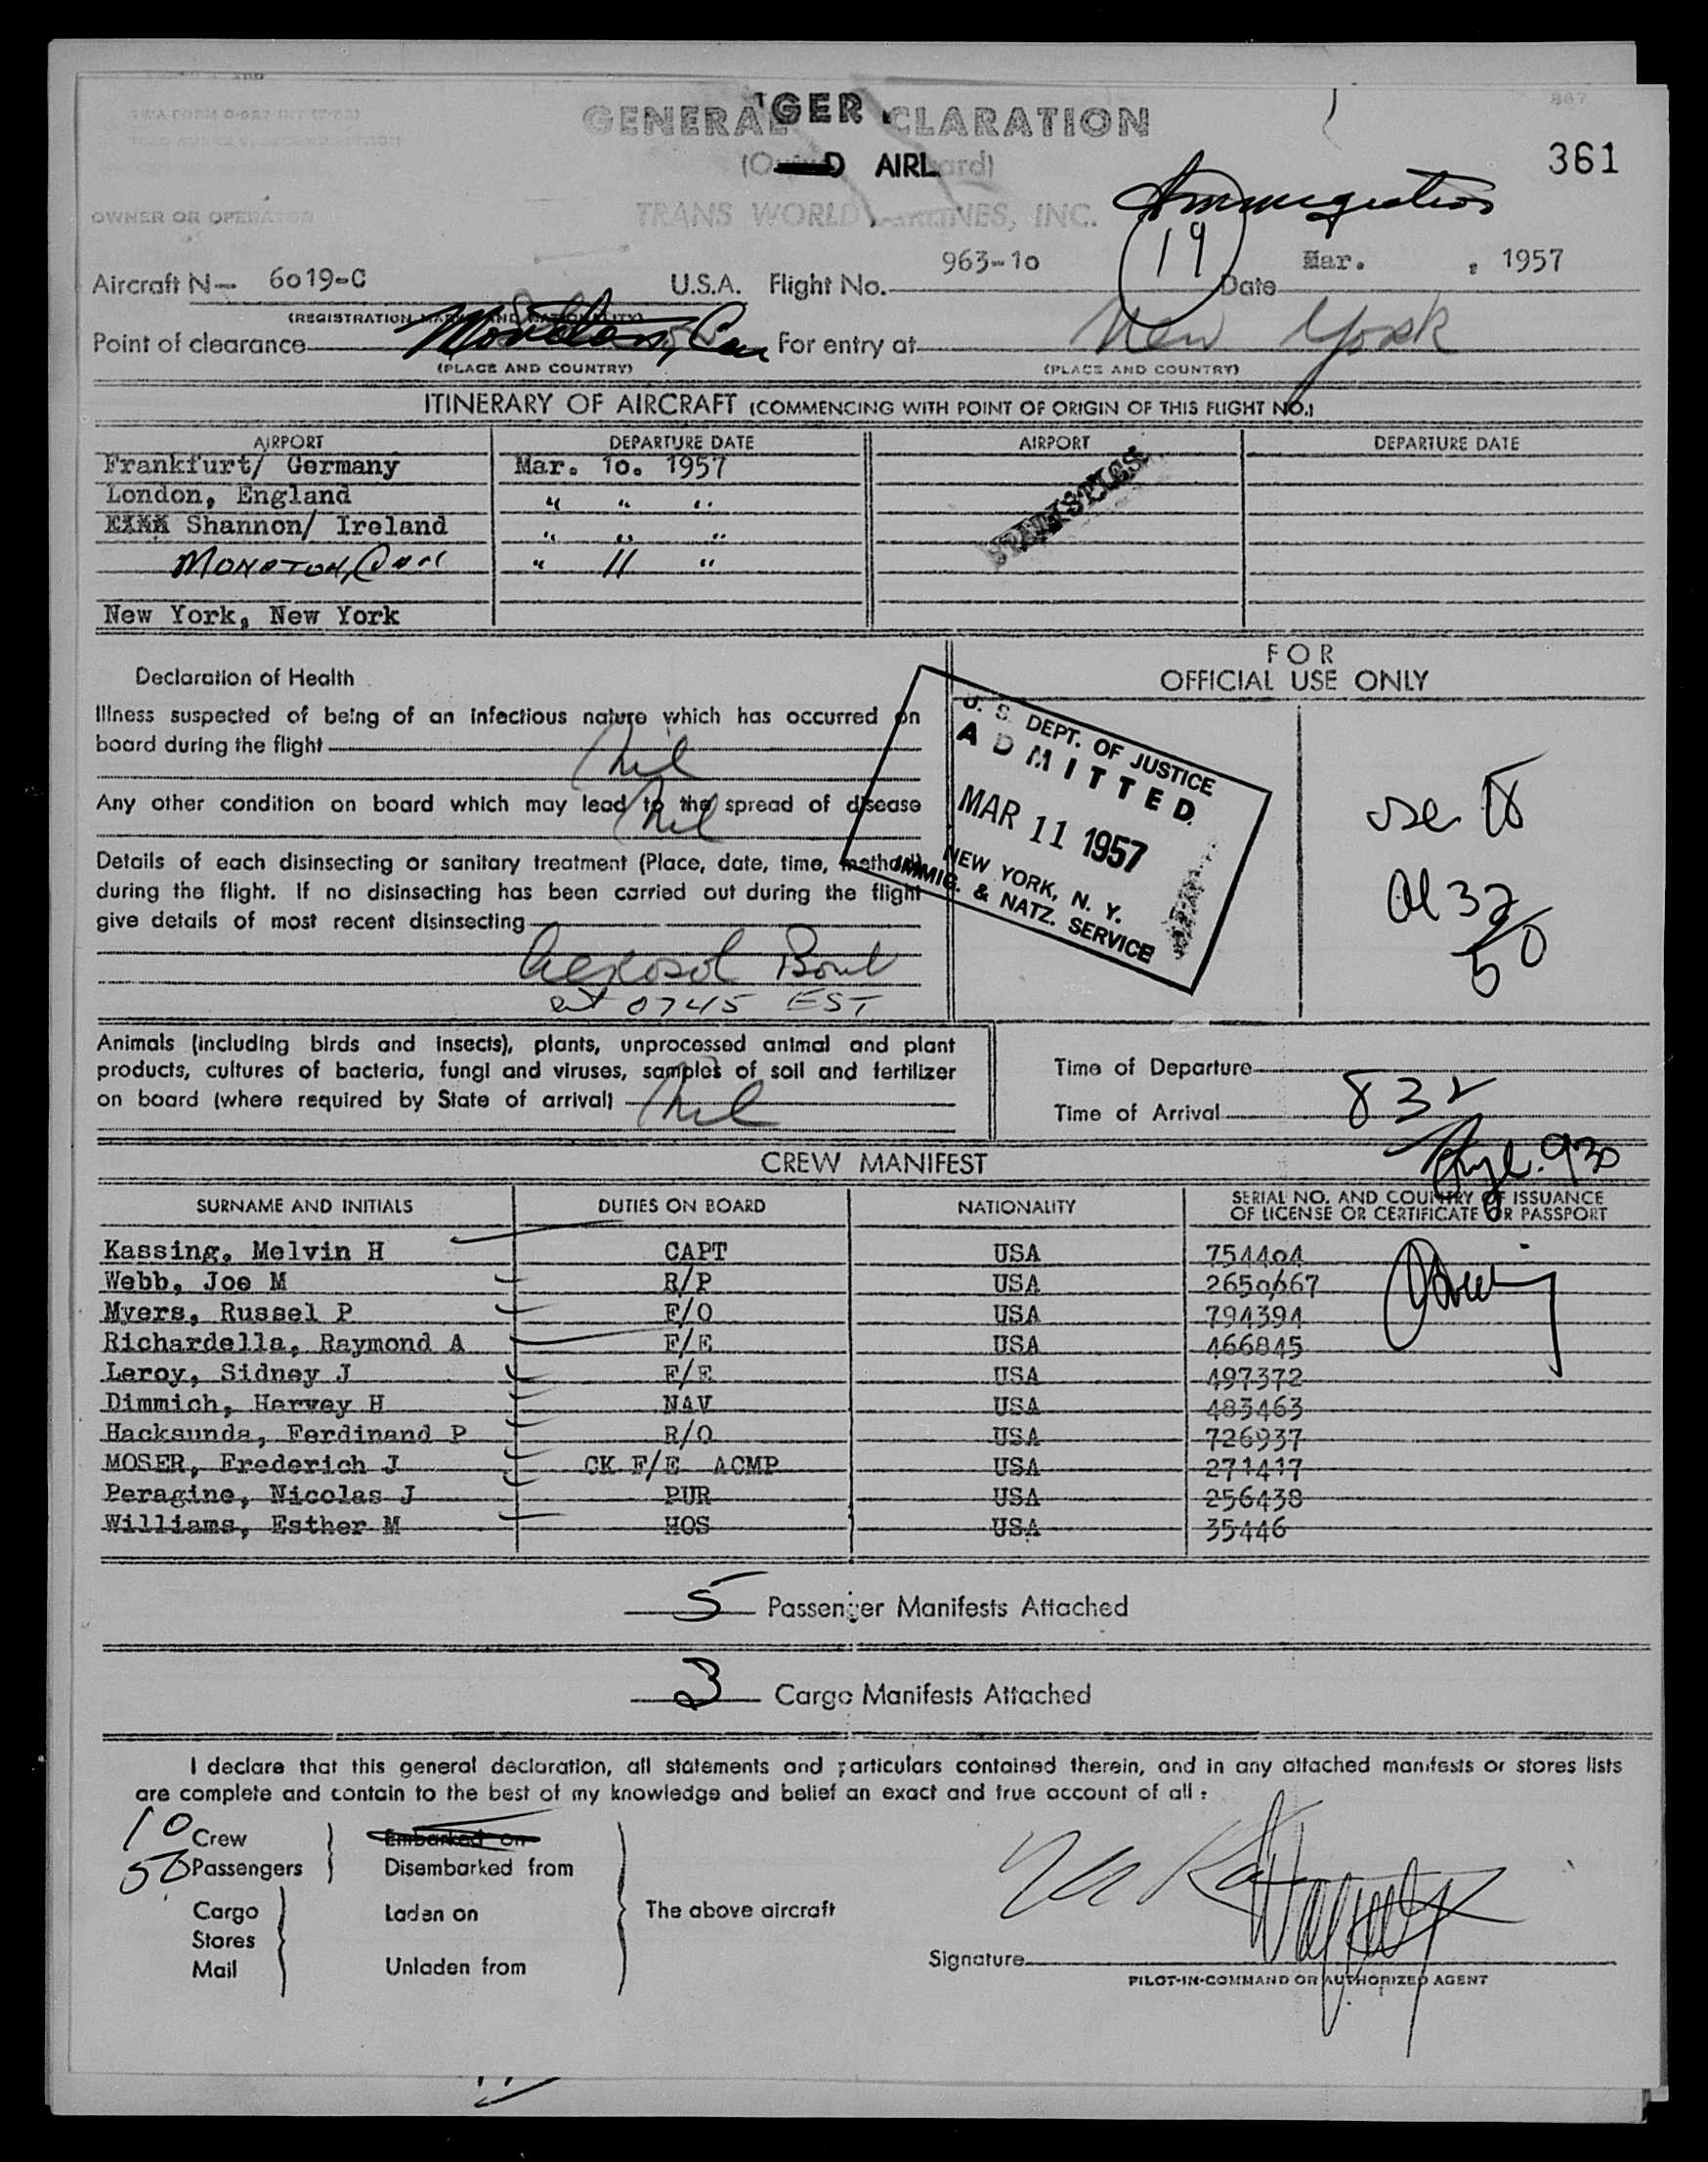 TWA FORM
867
GENERAL GER CLARATION
361
D AIRL ard)
Immigration
OWNER OR OPERATOR
TRANS WORLD AIRLINES, INC.
19
Aircraft N- 6019-C U.S.A. Flight No. 963-10 Date Mar. , 1957
(REGISTRATION MARKS AND NATIONALITY)
Point of clearance Moncton, Can For entry at New York
(PLACE AND COUNTRY) (PLACE AND COUNTRY)
ITINERARY OF AIRCRAFT (COMMENCING WITH POINT OF ORIGIN OF THIS FLIGHT NO.)
AIRPORT DEPARTURE DATE AIRPORT DEPARTURE DATE
Frankfurt/ Germany Mar. 10. 1957
London, England " " "
Shannon/ Ireland " " "
MONCTON, Can " 11 "
New York, New York
STATISTICS
FOR
OFFICIAL USE ONLY
Declaration of Health
Illness suspected of being of an infectious nature which has occurred on
board during the flight
nil
Any other condition on board which may lead to the spread of disease
nil
Details of each disinsecting or sanitary treatment (Place, date, time, method)
during the flight. If no disinsecting has been carried out during the flight
give details of most recent disinsecting
Aerosol Bomb
at 0745 EST
U. S. DEPT. OF JUSTICE
ADMITTED
MAR 11 1957
NEW YORK, N. Y.
IMMIG. & NATZ. SERVICE
usc 18
al 32
50
Animals (including birds and insects), plants, unprocessed animal and plant
products, cultures of bacteria, fungi and viruses, samples of soil and fertilizer
on board (where required by State of arrival)
nil
Time of Departure
Time of Arrival 832
930
CREW MANIFEST
SURNAME AND INITIALS DUTIES ON BOARD NATIONALITY SERIAL NO. AND COUNTRY OF ISSUANCE
OF LICENSE OR CERTIFICATE OR PASSPORT
Kassing, Melvin H CAPT USA 754404
Webb, Joe M R/P USA 2650667
Myers, Russel P F/O USA 794394
Richardella, Raymond A F/E USA 466845
Leroy, Sidney J F/E USA 497372
Dimmich, Harvey H NAV USA 483463
Hacksunda, Ferdinand P R/O USA 726937
MOSER, Frederich J CK F/E ACMP USA 271417
Peragine, Nicolas J PUR USA 256438
Williams, Esther M HOS USA 35446
5 Passenger Manifests Attached
3 Cargo Manifests Attached
I declare that this general declaration, all statements and particulars contained therein, and in any attached manifests or stores lists
are complete and contain to the best of my knowledge and belief an exact and true account of all :
10 Crew Embarked on
50 Passengers Disembarked from
Cargo Laden on The above aircraft
Stores
Mail Unladen from
Signature
PILOT-IN-COMMAND OR AUTHORIZED AGENT